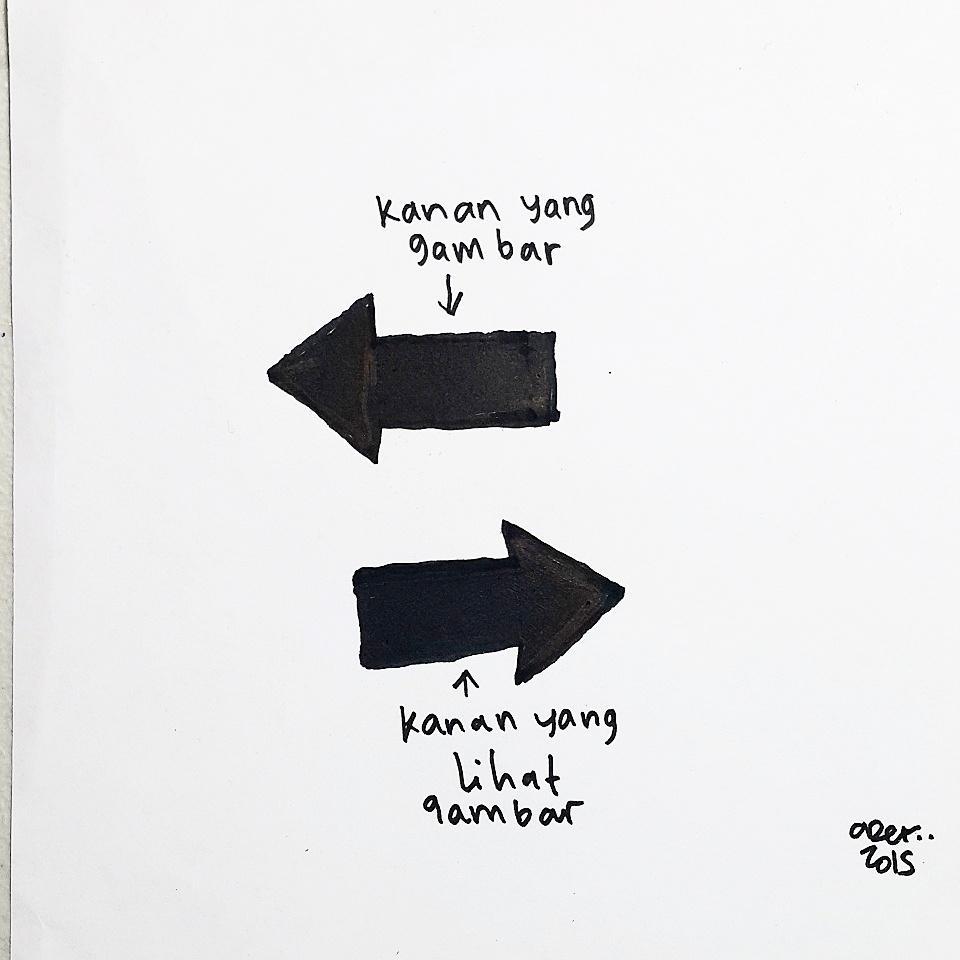 kanan yang
gambar
kanan yang
lihat
gambar
2015